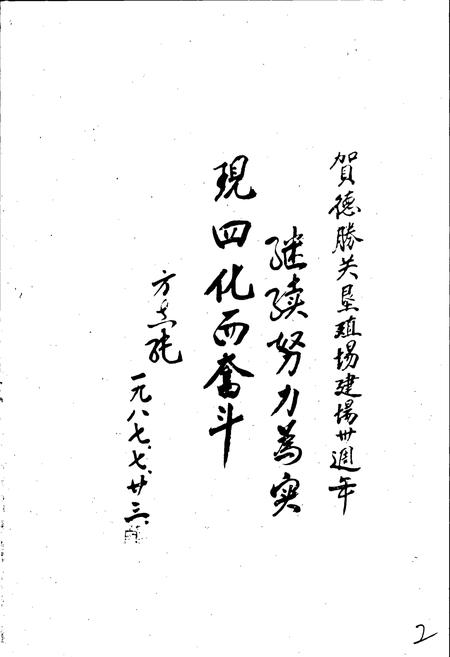 賀德勝关垦殖場建場卅週年
继续努力為实
現四化而奋斗
方志纯
一九八七、七、廿三、
2